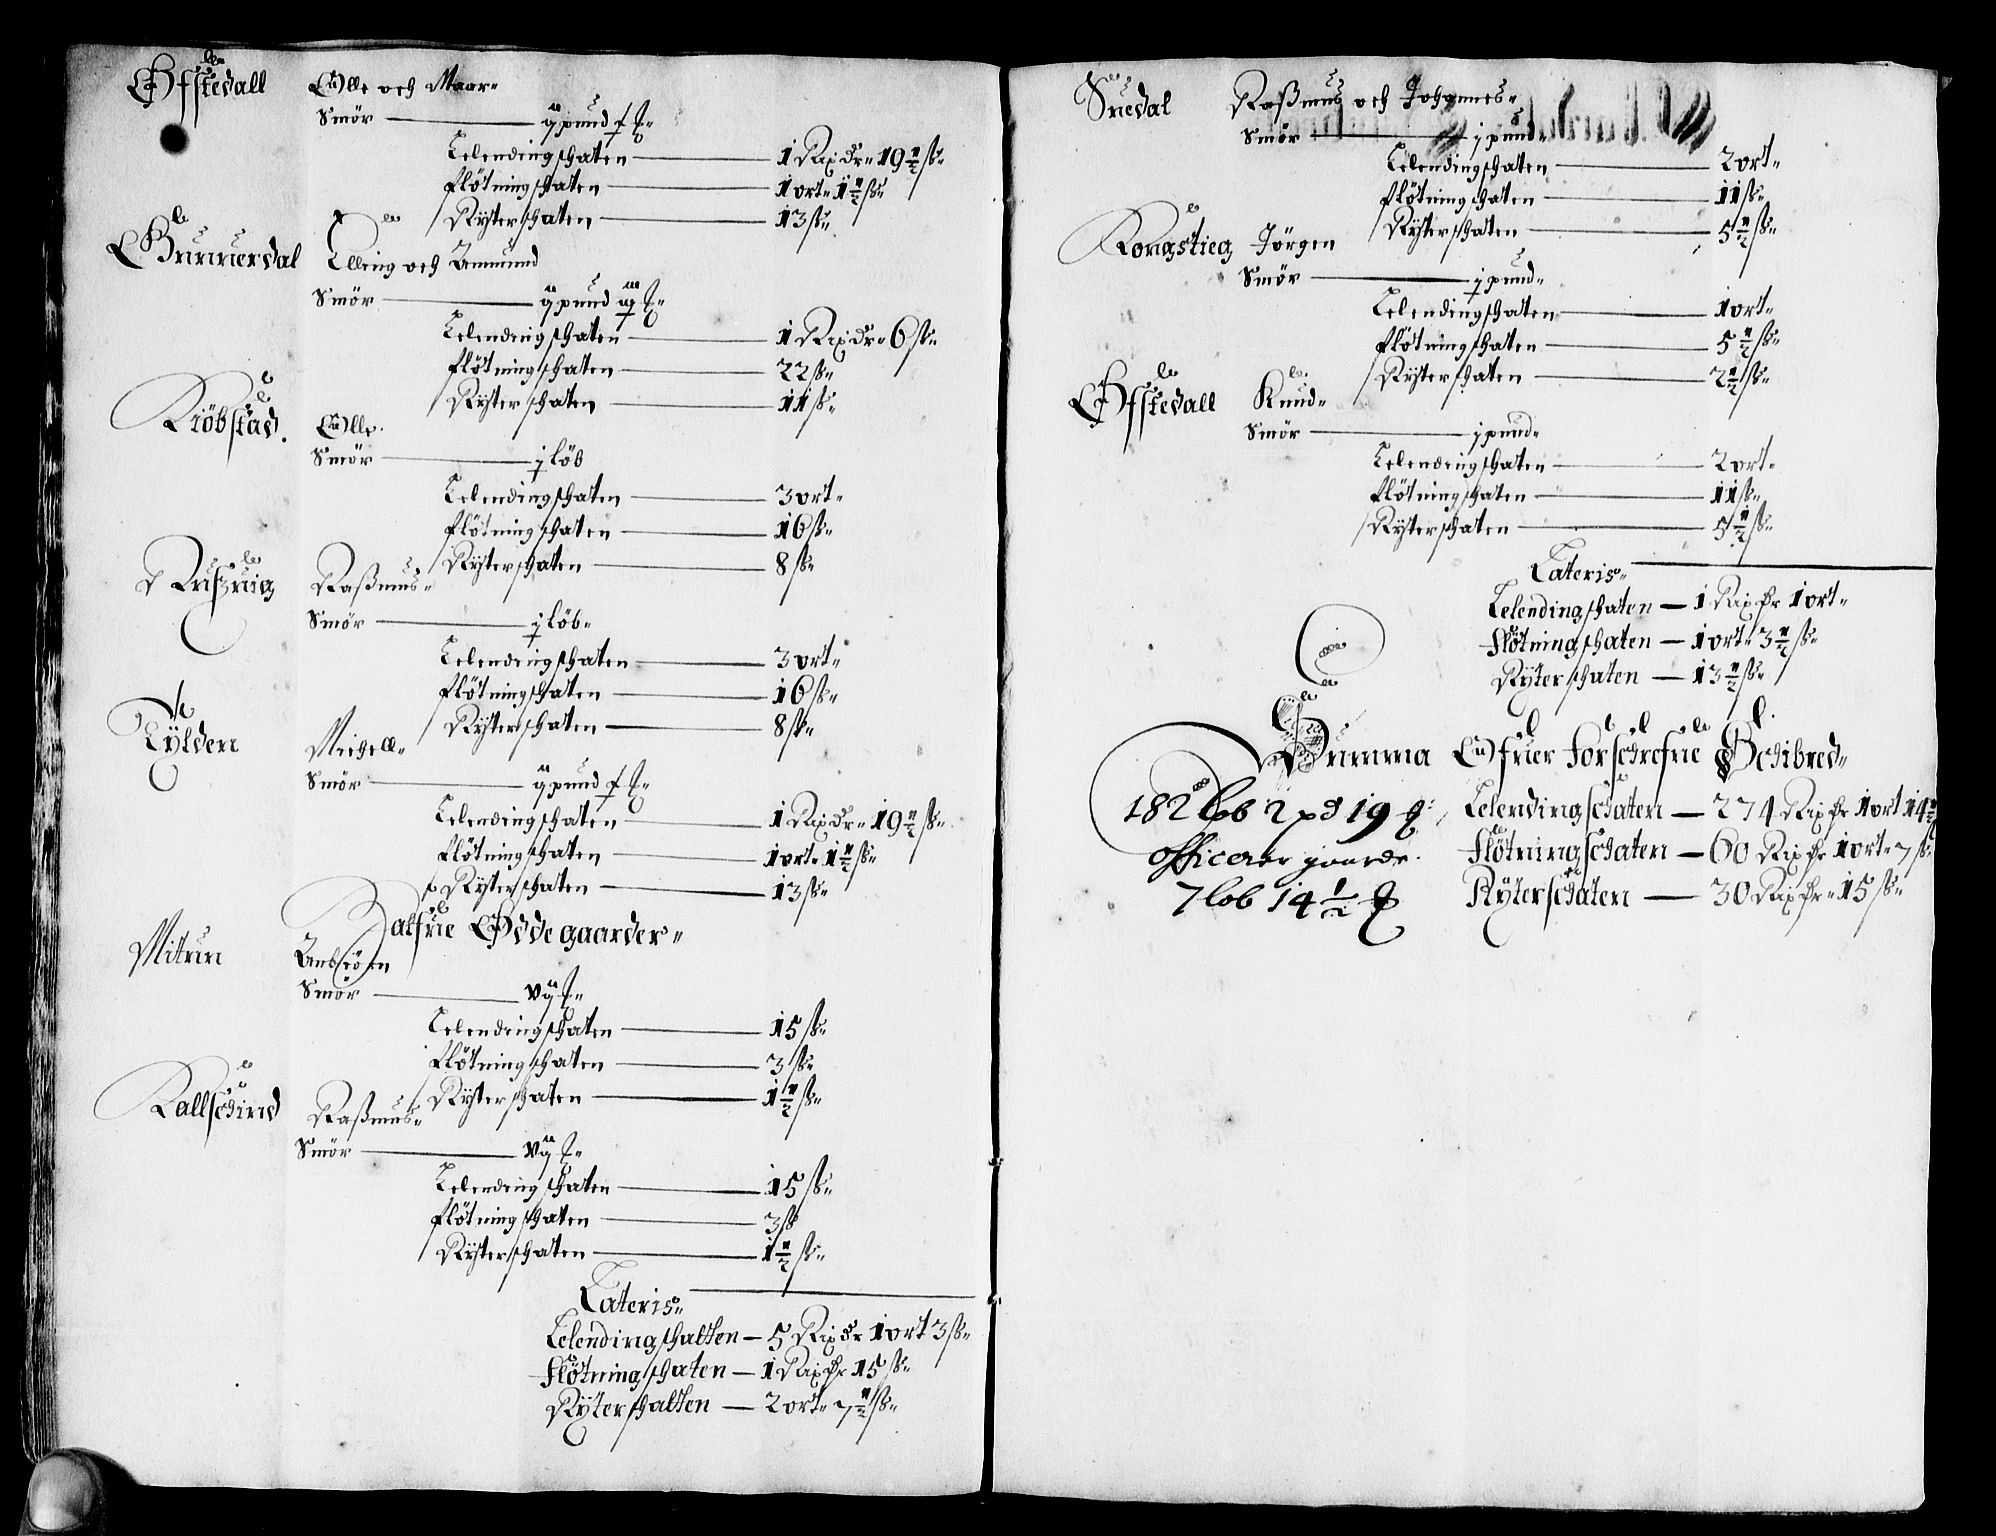 Øfstedall Olle och Maar
Smör ij pund
Lelendingschaten 1 Rixdr 19½ ß
flötningschaten 1 ort 1½ ß
Ryterschaten 13 ß
Gunnersdal Elling och Amund
Smör ij pund
Lelendingschaten 1 Rixdr 6 ß
flötningschaten 22 ß
Ryterschaten 11 ß
Kiöbstad Olle
Smör j löb
Lelendingschaten 3 ort
flötningschaten 16 ß
Ryterschaten 8 ß
Rasmus
Smör j löb
Lelendingschaten 3 ort
flötningschaten 16 ß
Ryterschaten 8 ß
Tylden Michell
Smör ij pund
Lelendingschaten 1 Rixdr 19½ ß
flötningschaten 1 ort 1½ ß
Ryterschaten 13 ß
Halfue Øddegaarder
Mitun Anbiörn
Smör vij
Lelendingschaten 15 ß
flötningschaten 3 ß
Ryterschaten 1½ ß
Kallschind Rasmus
Smör vij
Lelendingschaten 15 ß
flötningschaten 3 ß
Ryterschaten 1½ ß
Lateris
Lelendingschatten 5 Rixdr 1 ort 3 ß
flötningschaten 1 Rixdr 15 ß
Ryterschatten 2 ort 7½ ß
Suedal Rasmus och Johannes
Smör j pund
Lelendingschaten 2 ort
flötningschaten 11 ß
Ryterschaten 5½ ß
Kongstieg Jörgen
Smör j pund
Lelendingschaten 1 ort
flötningschaten 5½ ß
Ryterschaten 2½ ß
Øfstedall Knud
Smör j pund
Lelendingschaten 2 ort
flötningschaten 11 ß
Ryterschaten 5½ ß
Lateris
Lelendingschaten 1 Rixdr 1 ort
flötningschaten 1 ort 3½ ß
Ryterschaten 13½ ß
Summa Ofuer forschrefne Schibred
182 lob 2 pd 19
Lelendingschaten 274 Rixdr 1 ort 14½
officerer gaarde
flötningschaten 60 Rixdr 1 ort 7 ß
7 lob 14½
Ryterschaten 30 Rixdr 15 ß